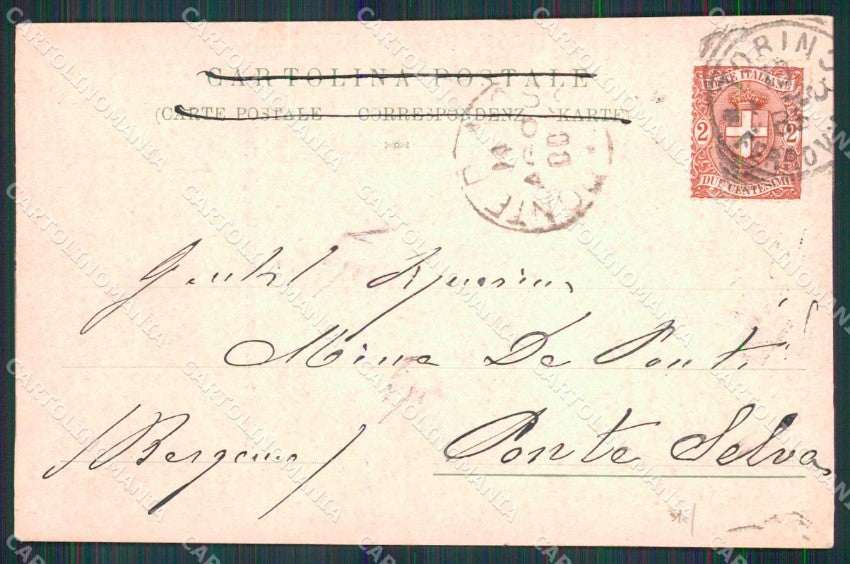 CARTOLINA POSTALE
(CARTE POSTALE CORRESPONDENZ KARTE)
POSTE ITALIANE
2 2
DUE CENTESIMI
TORINO
Gentil Signorina
Mina De Ponti
Ponte Selva
(Bergamo)
CARTOLINOMANIA